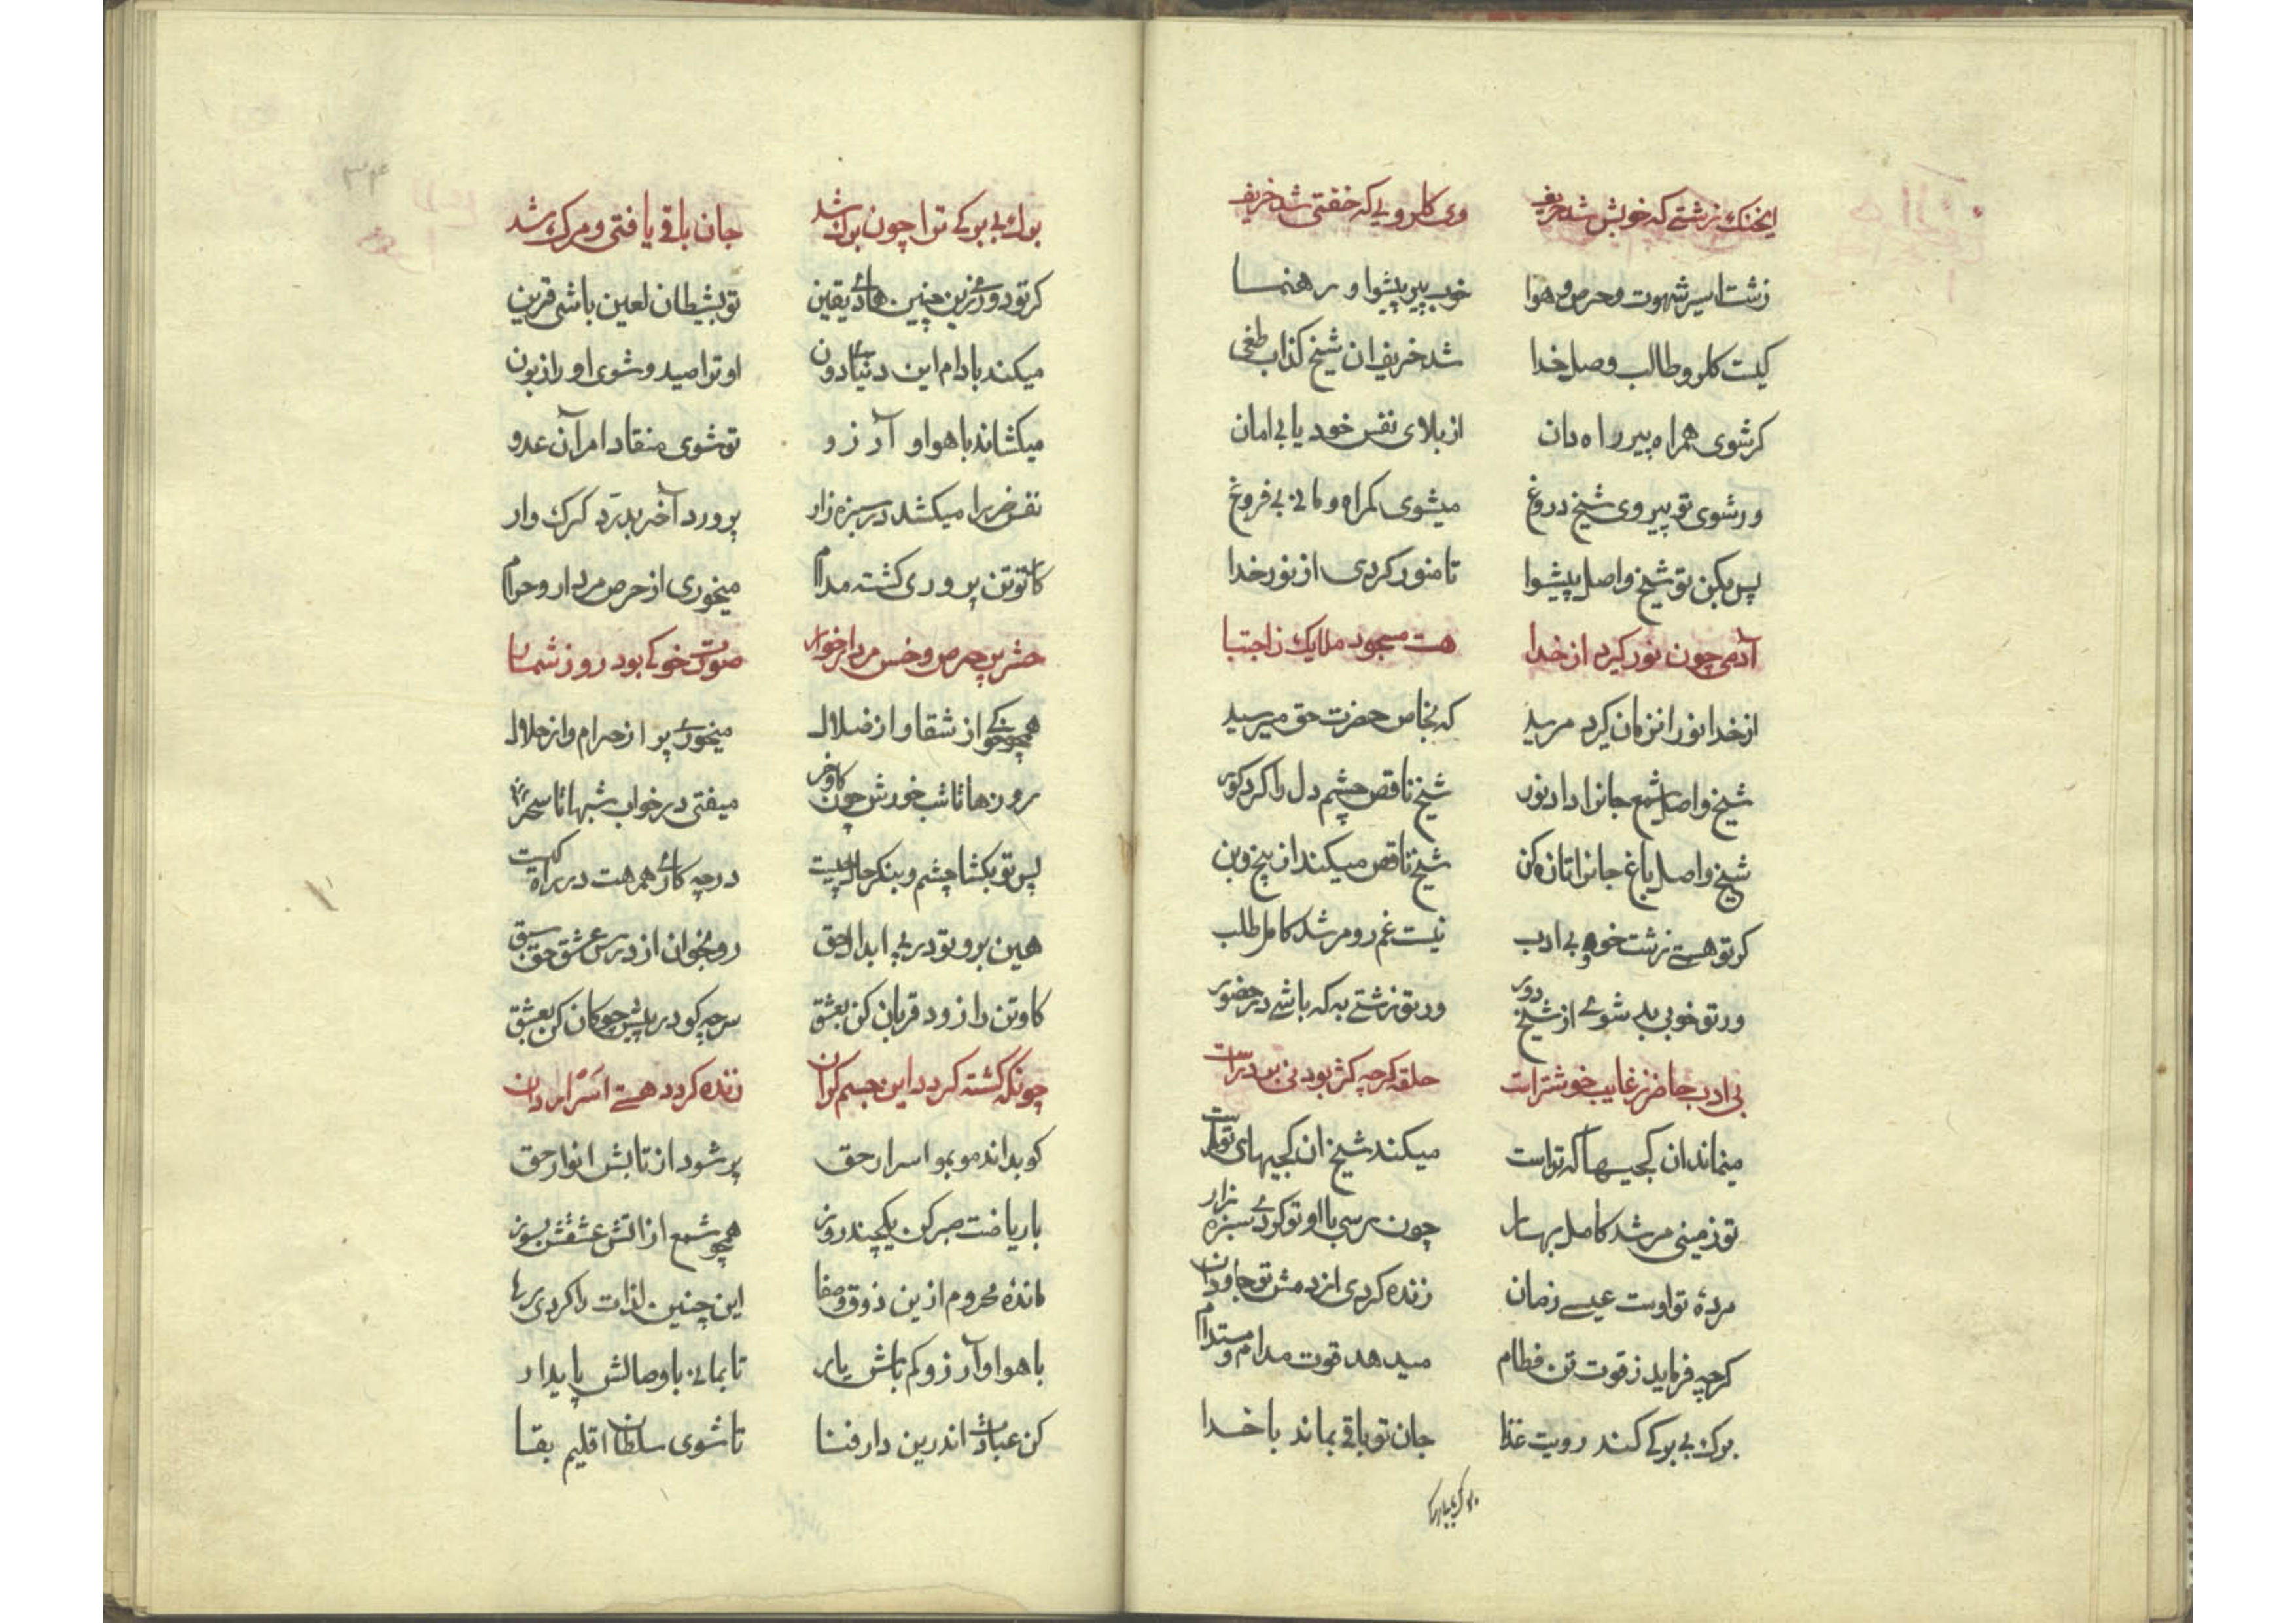 ایخنک زشتی که خوبش شد حریف وی کلرویی که خفتی شد خریف
زشت اسیر شهوت و حرص و هوا خوب پیر پیشوا و رهنما
کیست کلرو طالب وصل خدا شد خریف ان شیخ کذاب طغی
کر شوی همراه پیر راه دان از بلای نفس خود یابی امان
ور شوی تو پیروی شیخ دروغ میشوی کمراه و مانی بی فروغ
پس بکن تو شیخ واصل پیشوا تا منور کردی از نور خدا
آدمی چون نور کیرد از خدا هست مسجود ملایک ز اجتبا
از خدا نور انزمان کیرد مرید که بخاص حضرت حق میرسید
شیخ واصل شمع جانرا داد نور شیخ ناقص چشم دل را کرد کور
شیخ واصل باغ جانرا تازه کن شیخ ناقص میکند از بیخ و بن
کر تو هستی زشت خو و بی ادب نیست غم رو مرشد کامل طلب
ور تو خوبی بد شوی از شیخ دور ور تو زشتی به که باشی در حضور
بی ادب حاضر ز غایب خوشترست حلقه کرچه کژ بود نی بر درست
مینماند ان کجیها که تراست میکند شیخ ان کجیهای تو راست
تو زمینی مرشد کامل بهار چون رسی با او تو کردی سبزه زار
مردهٔ تو اوست عیسی زمان زنده کردی از دمش تو جاودان
کرچه فرماید ز قوت تن فطام میدهد قوت مدام و مستدام
برک بی برکی کند رویت غذا جان تو باقی بماند با خدا
۳۴
برك بی برکی ترا چون برك شد جان باقی یافتی و مرک شد
کر تو دوری زین چنین هادی یقین تو بشیطان لعین باشی قرین
میکند با دام این دنیای دون او ترا صید و شوی او را زبون
میکشاند با هوا و آرزو تو شوی منقاد امر آن عدو
نفس خر را میکشد در سبزه زار پرورد آخر بدرد کرک وار
کاو تن پروری کشته مدام میخوری از حرص مردار و حرام
حشر پر حرص و خس مردار خوار صورت خوکی بود روز شمار
همچو خوکی از شقا و از ضلال میخوری پر از حرام و از حلال
روزها تا شب خورش چون کاو و خر میفتی در خواب شبها تا سحر
پس تو بکشا چشم و بنکر حال چیست در چه کاری همرهت در راه کیست
هین برو تو در پی ابدال حق رو بخوان از درس عشق حق سبق
کاو تن را زود قربان کن بعشق سر چو کو در پیش چوکان کن بعشق
چونکه کشته کردد این جسم کران زنده کردد هستی اسرار دان
کو بداند مو بمو اسرار حق پر شود از تابش انوار حق
با ریاضت صبر کن یکچند روز همچو شمع از اتش عشقش بسوز
ماندهٔ محروم ازین ذوق و صفا این چنین لذات را کردی رها
با هوا و آرزو کم باش یار تا بمانی با وصالش پایدار
کن عبادت اندرین دار فنا تا شوی سلطان اقلیم بقا